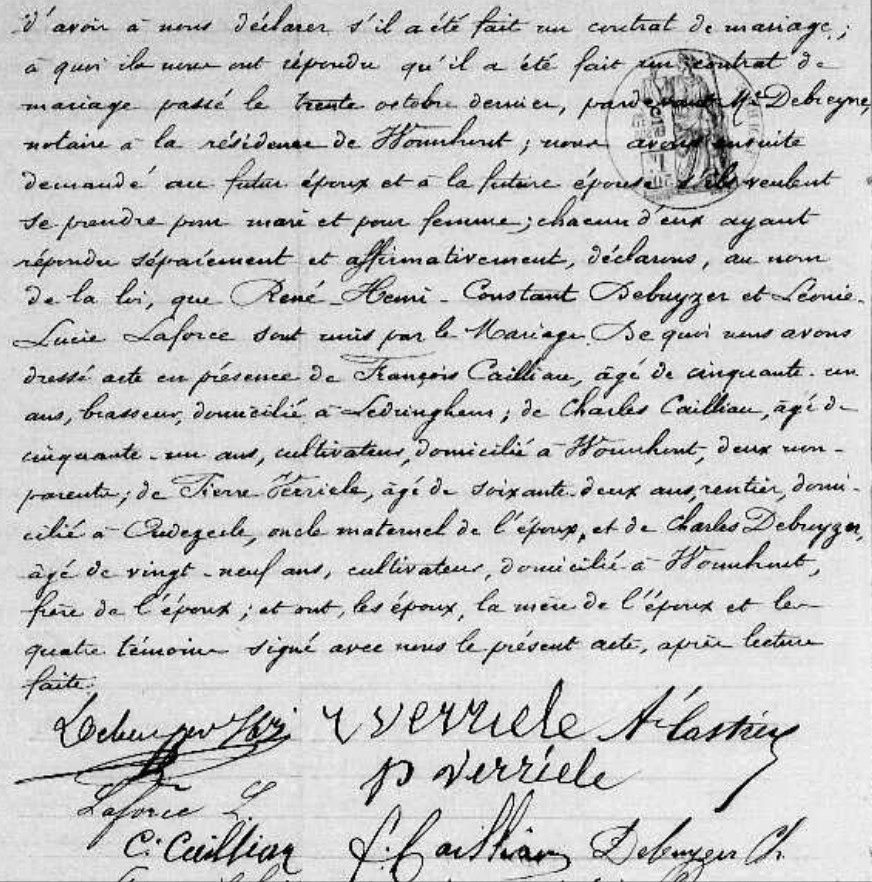 d'avoir à nous déclarer s'il a été fait un contrat de mariage ;
à quoi ils nous ont répondu qu'il a été fait un contrat de
mariage passé le trente octobre dernier, pardevant Me Debreyne,
notaire à la résidence de Wormhout ; nous avons ensuite
demandé au futur époux et à la future épouse s'ils veulent
se prendre pour mari et pour femme ; chacun d'eux ayant
répondu séparément et affirmativement, déclarons, au nom
de la loi, que René-Henri-Constant Debuyzer et Léonie-
Lucie Laforce sont unis par le Mariage. De quoi nous avons
dressé acte en présence de François Cailliau, âgé de cinquante-un
ans, brasseur, domicilié à Ledringhem ; de Charles Cailliau, âgé de
cinquante-un ans, cultivateur, domicilié à Wormhout, deux non-
parents ; de Pierre Verriele, âgé de soixante-deux ans, rentier, domi-
cilié à Oudezeele, oncle maternel de l'époux, et de Charles Debuyzer,
âgé de vingt-neuf ans, cultivateur, domicilié à Wormhout,
frère de l'époux ; et ont, les époux, la mère de l'époux et les
quatre témoins signé avec nous le présent acte, après lecture
faite.
Debuyzer Hri verriele
p verriele
Laforce L
C. Cailliau f. Cailliau Debuyzer Ch.